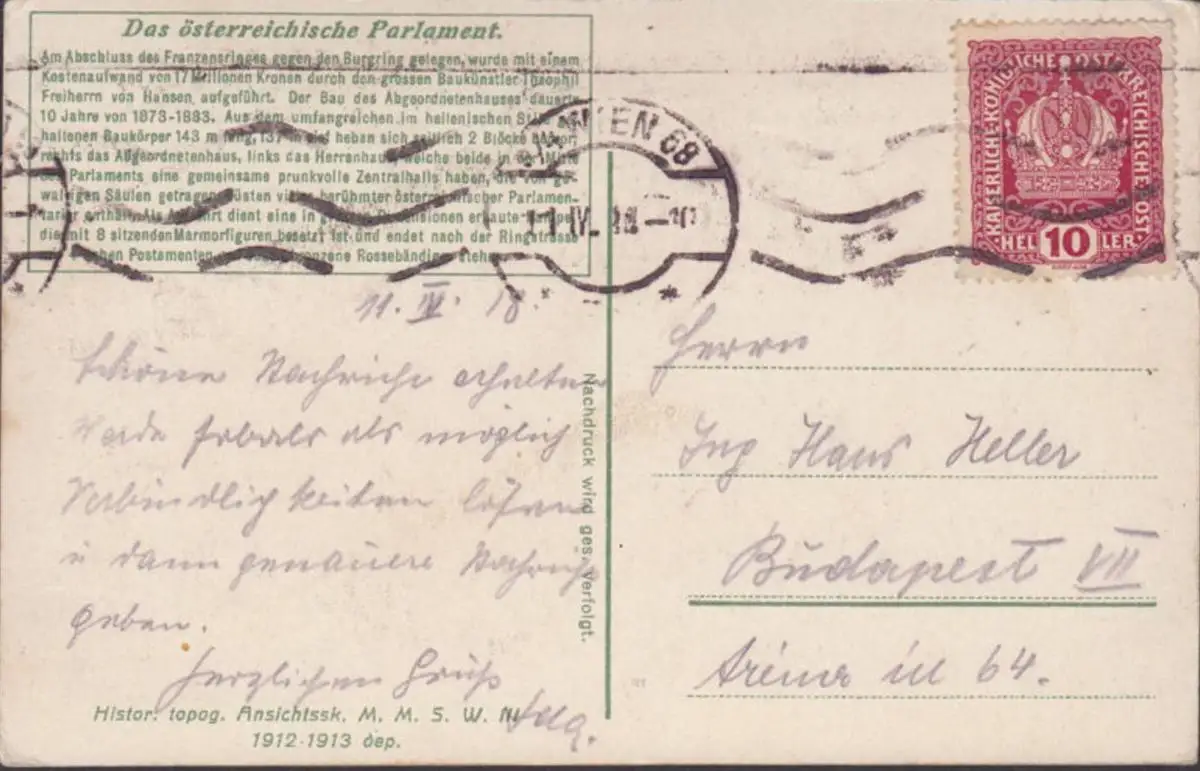 Das österreichische Parlament.
Am Abschluss des Franzensringes gegen den Burgring gelegen, wurde mit einem
Kostenaufwand von 17 Millionen Kronen durch den grossen Baukünstler Theophil
Freiherrn von Hansen aufgeführt. Der Bau des Abgeordnetenhauses dauerte
10 Jahre von 1873-1883. Aus dem umfangreichen im hellenischen Stil
haltenen Baukörper 143 m lang, 137 m tief heben sich seitlich 2 Blöcke
rechts das Abgeordnetenhaus, links das Herrenhaus, welche beide in
Parlaments eine gemeinsame prunkvolle Zentralhalle haben, die von ge-
waltigen Säulen getragen, Büsten berühmter österreichischer Parlamen-
tarier enthält. Als Auffahrt dient eine in Dimensionen erbaute Rampe,
die mit 8 sitzenden Marmorfiguren besetzt ist und endet nach der Ringstrasse
Postamenten Rossebändiger
WIEN 68
11 IV
KAISERLICH-KÖNIGLICHE ÖSTERREICHISCHE POST
HEL 10 LER
11. IV. 18.
Schöne Nachricht erhalten
Werde sobald als möglich
Verbindlichkeiten lösen
u dann genauere Nachricht
geben.
Herzlichen Gruß
Herrn
Ing Hans Heller
Budapest VII
út 64.
Nachdruck wird ges. verfolgt.
Histor. topog. Ansichtssk. M. M. S. W. III
1912-1913 dep.